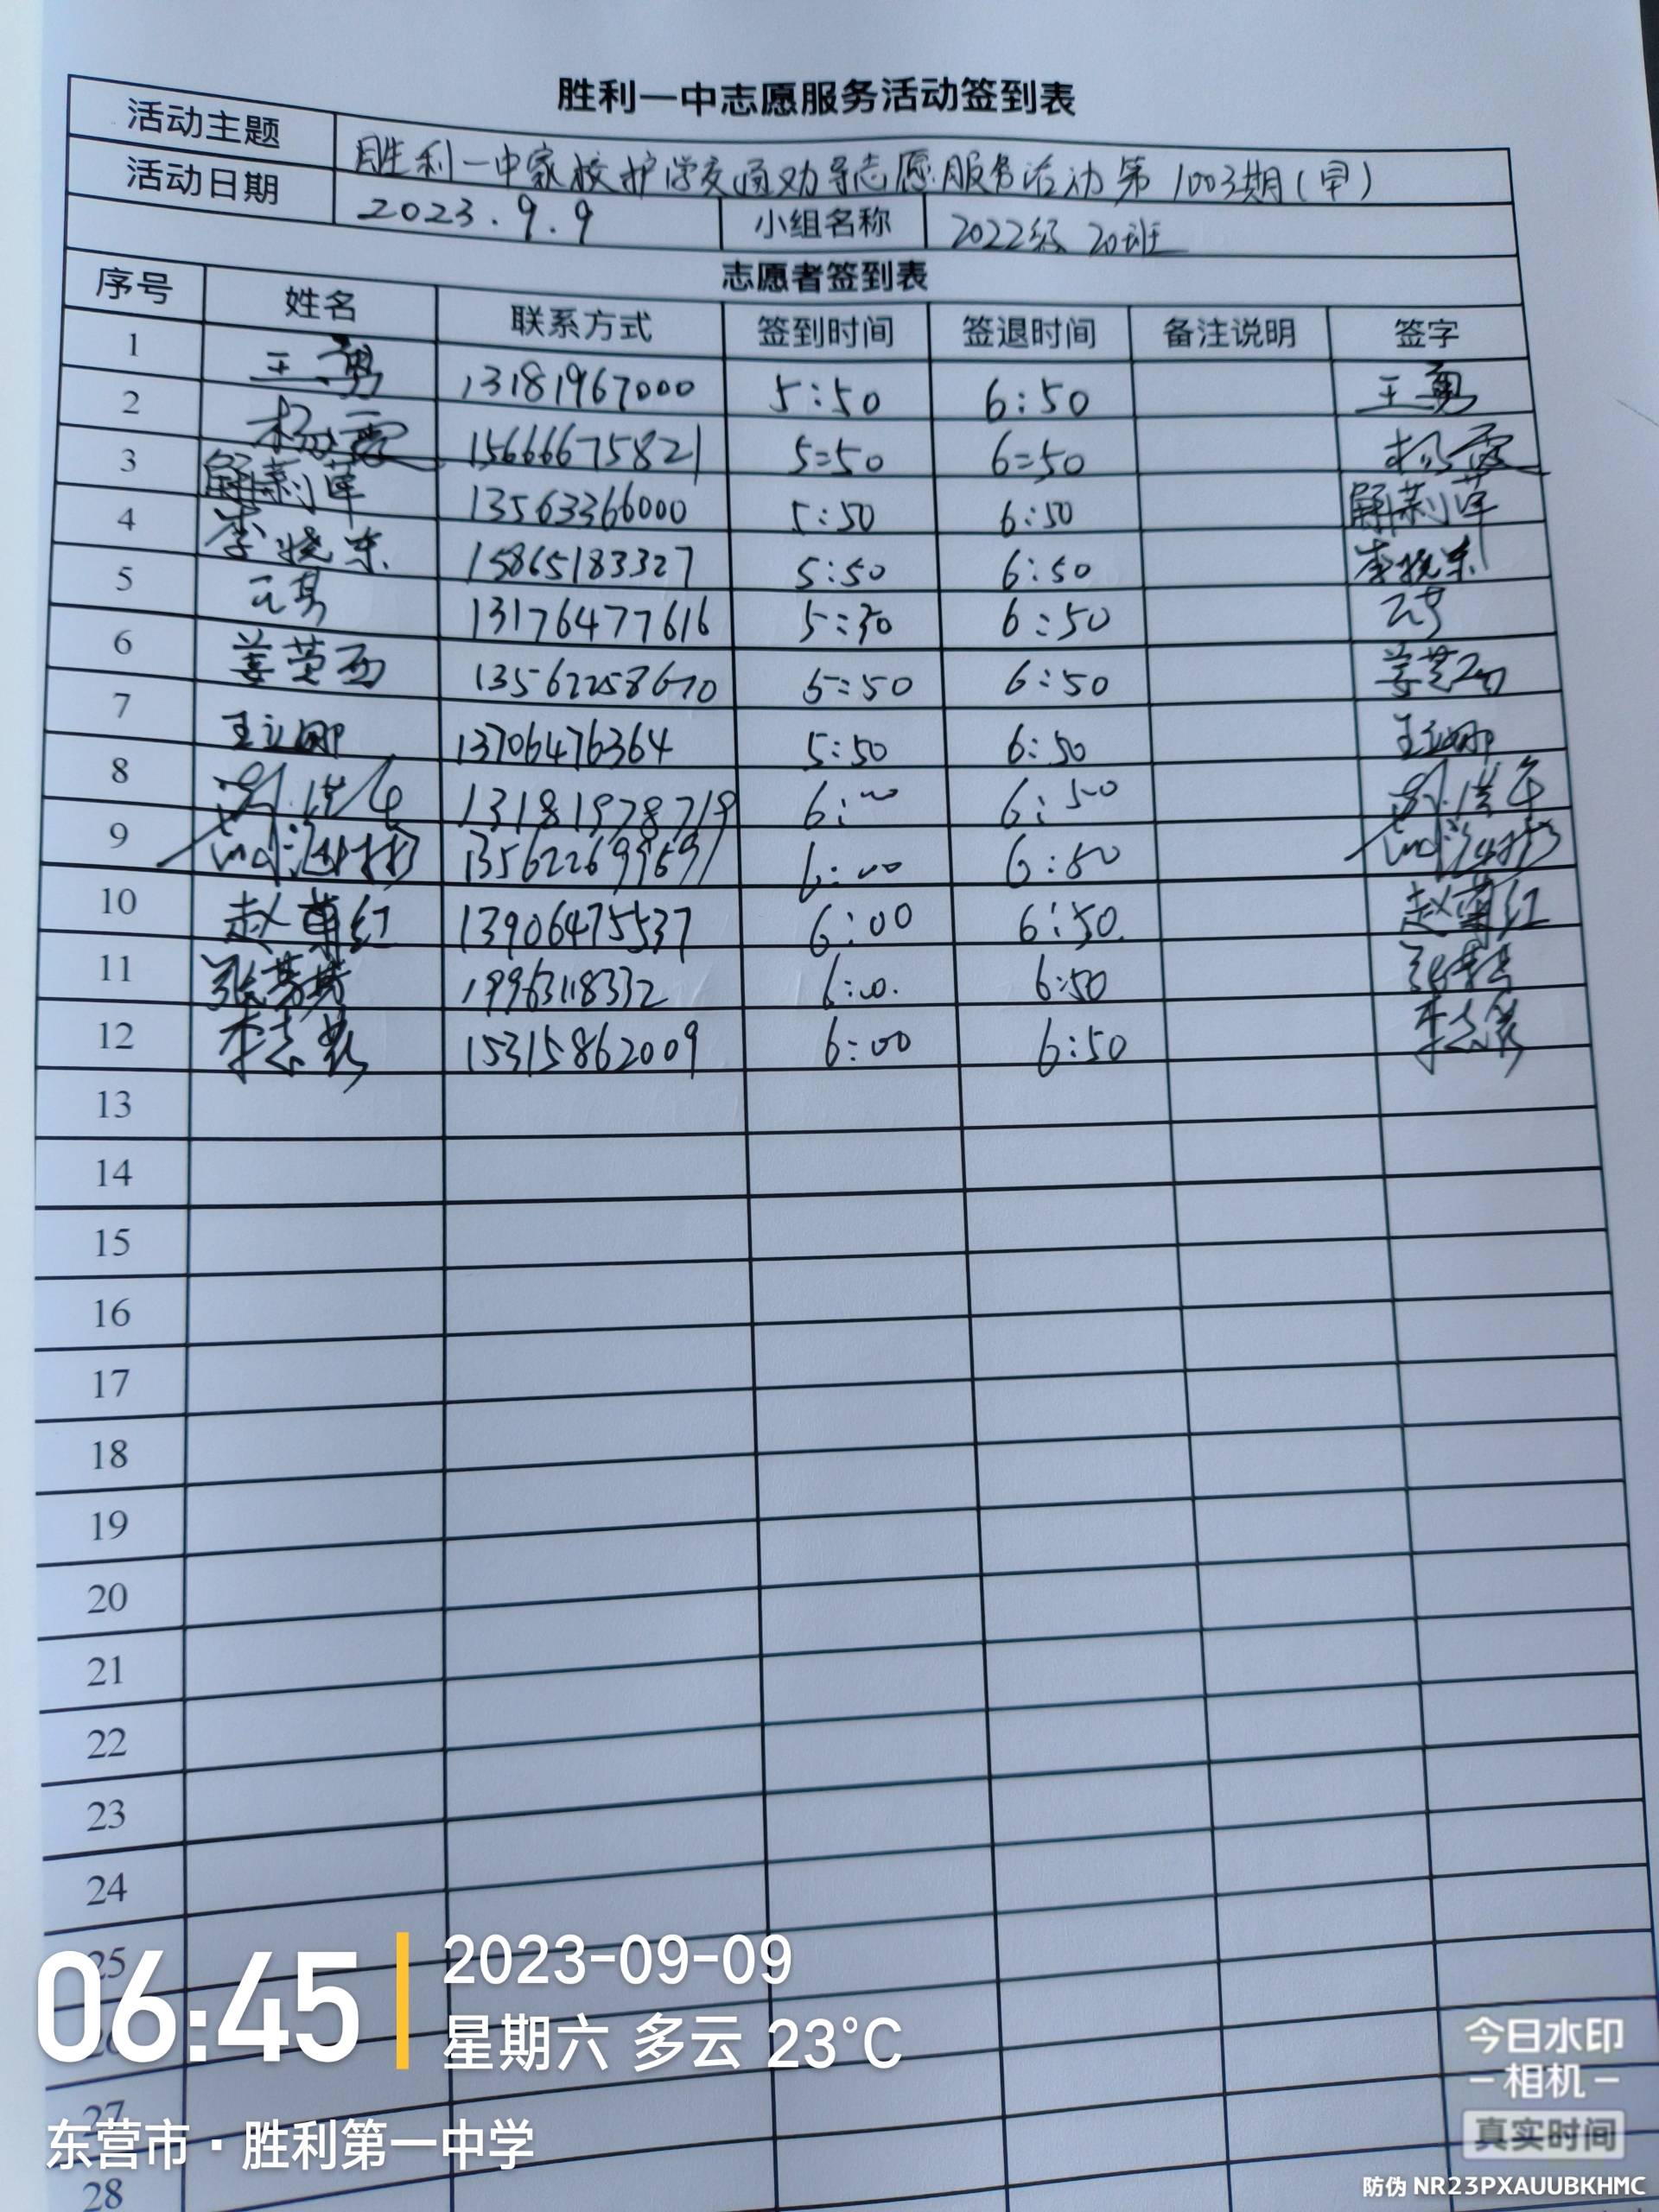 胜利一中志愿服务活动签到表
活动主题 胜利一中家校护学交通劝导志愿服务活动第1003期(早)
活动日期 2023.9.9 小组名称 2022级20班
志愿者签到表
序号 姓名 联系方式 签到时间 签退时间 备注说明 签字
1 王勇 13181967000 5:50 6:50 王勇
2 杨霞 15666675821 5=50 6=50 杨霞
3 13563366000 5:50 6:50
4 李晓东 15865183327 5:50 6:50 李晓东
5 13176477616 6:50
6 5=50 6:50
7 王立娜 13706476364 5:50 6:50 王立娜
8 13181978719 6:50
9 6:50
10 赵尊红 13906475537 6:00 6:50. 赵尊红
11 19963118332 6:50
12 15315862009 6:00 6:50
13
14
15
16
17
18
19
20
21
22
23
24
25
26
27
28
06:45
2023-09-09
星期六 多云 23°C
东营市·胜利第一中学
今日水印
-相机-
真实时间
防伪 NR23PXAUUBKHMC